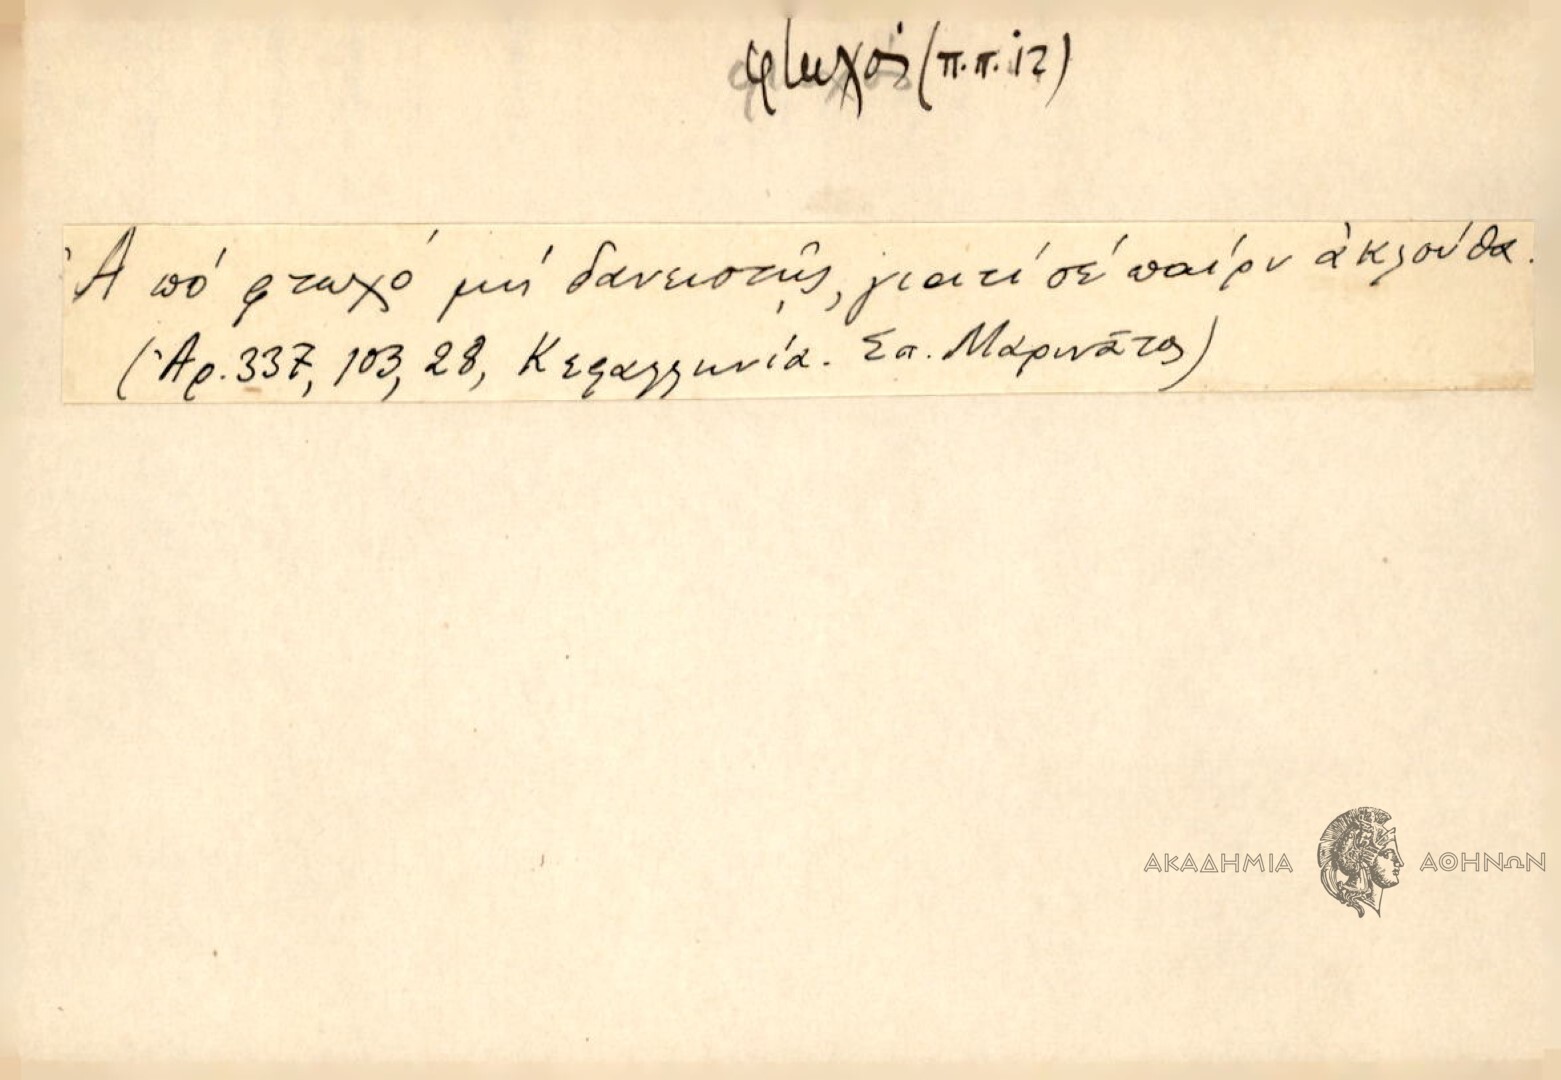 φτωχός (π.π. 12)
Ἀπό φτωχό μή δανειστῆς, γιατί σέ παίρν ἀκλούθα.
(Ἀρ. 337, 103, 28, Κεφαλληνία. Σπ. Μαρινᾶτος)
ΑΚΑΔΗΜΙΑ ΑΘΗΝΩΝ